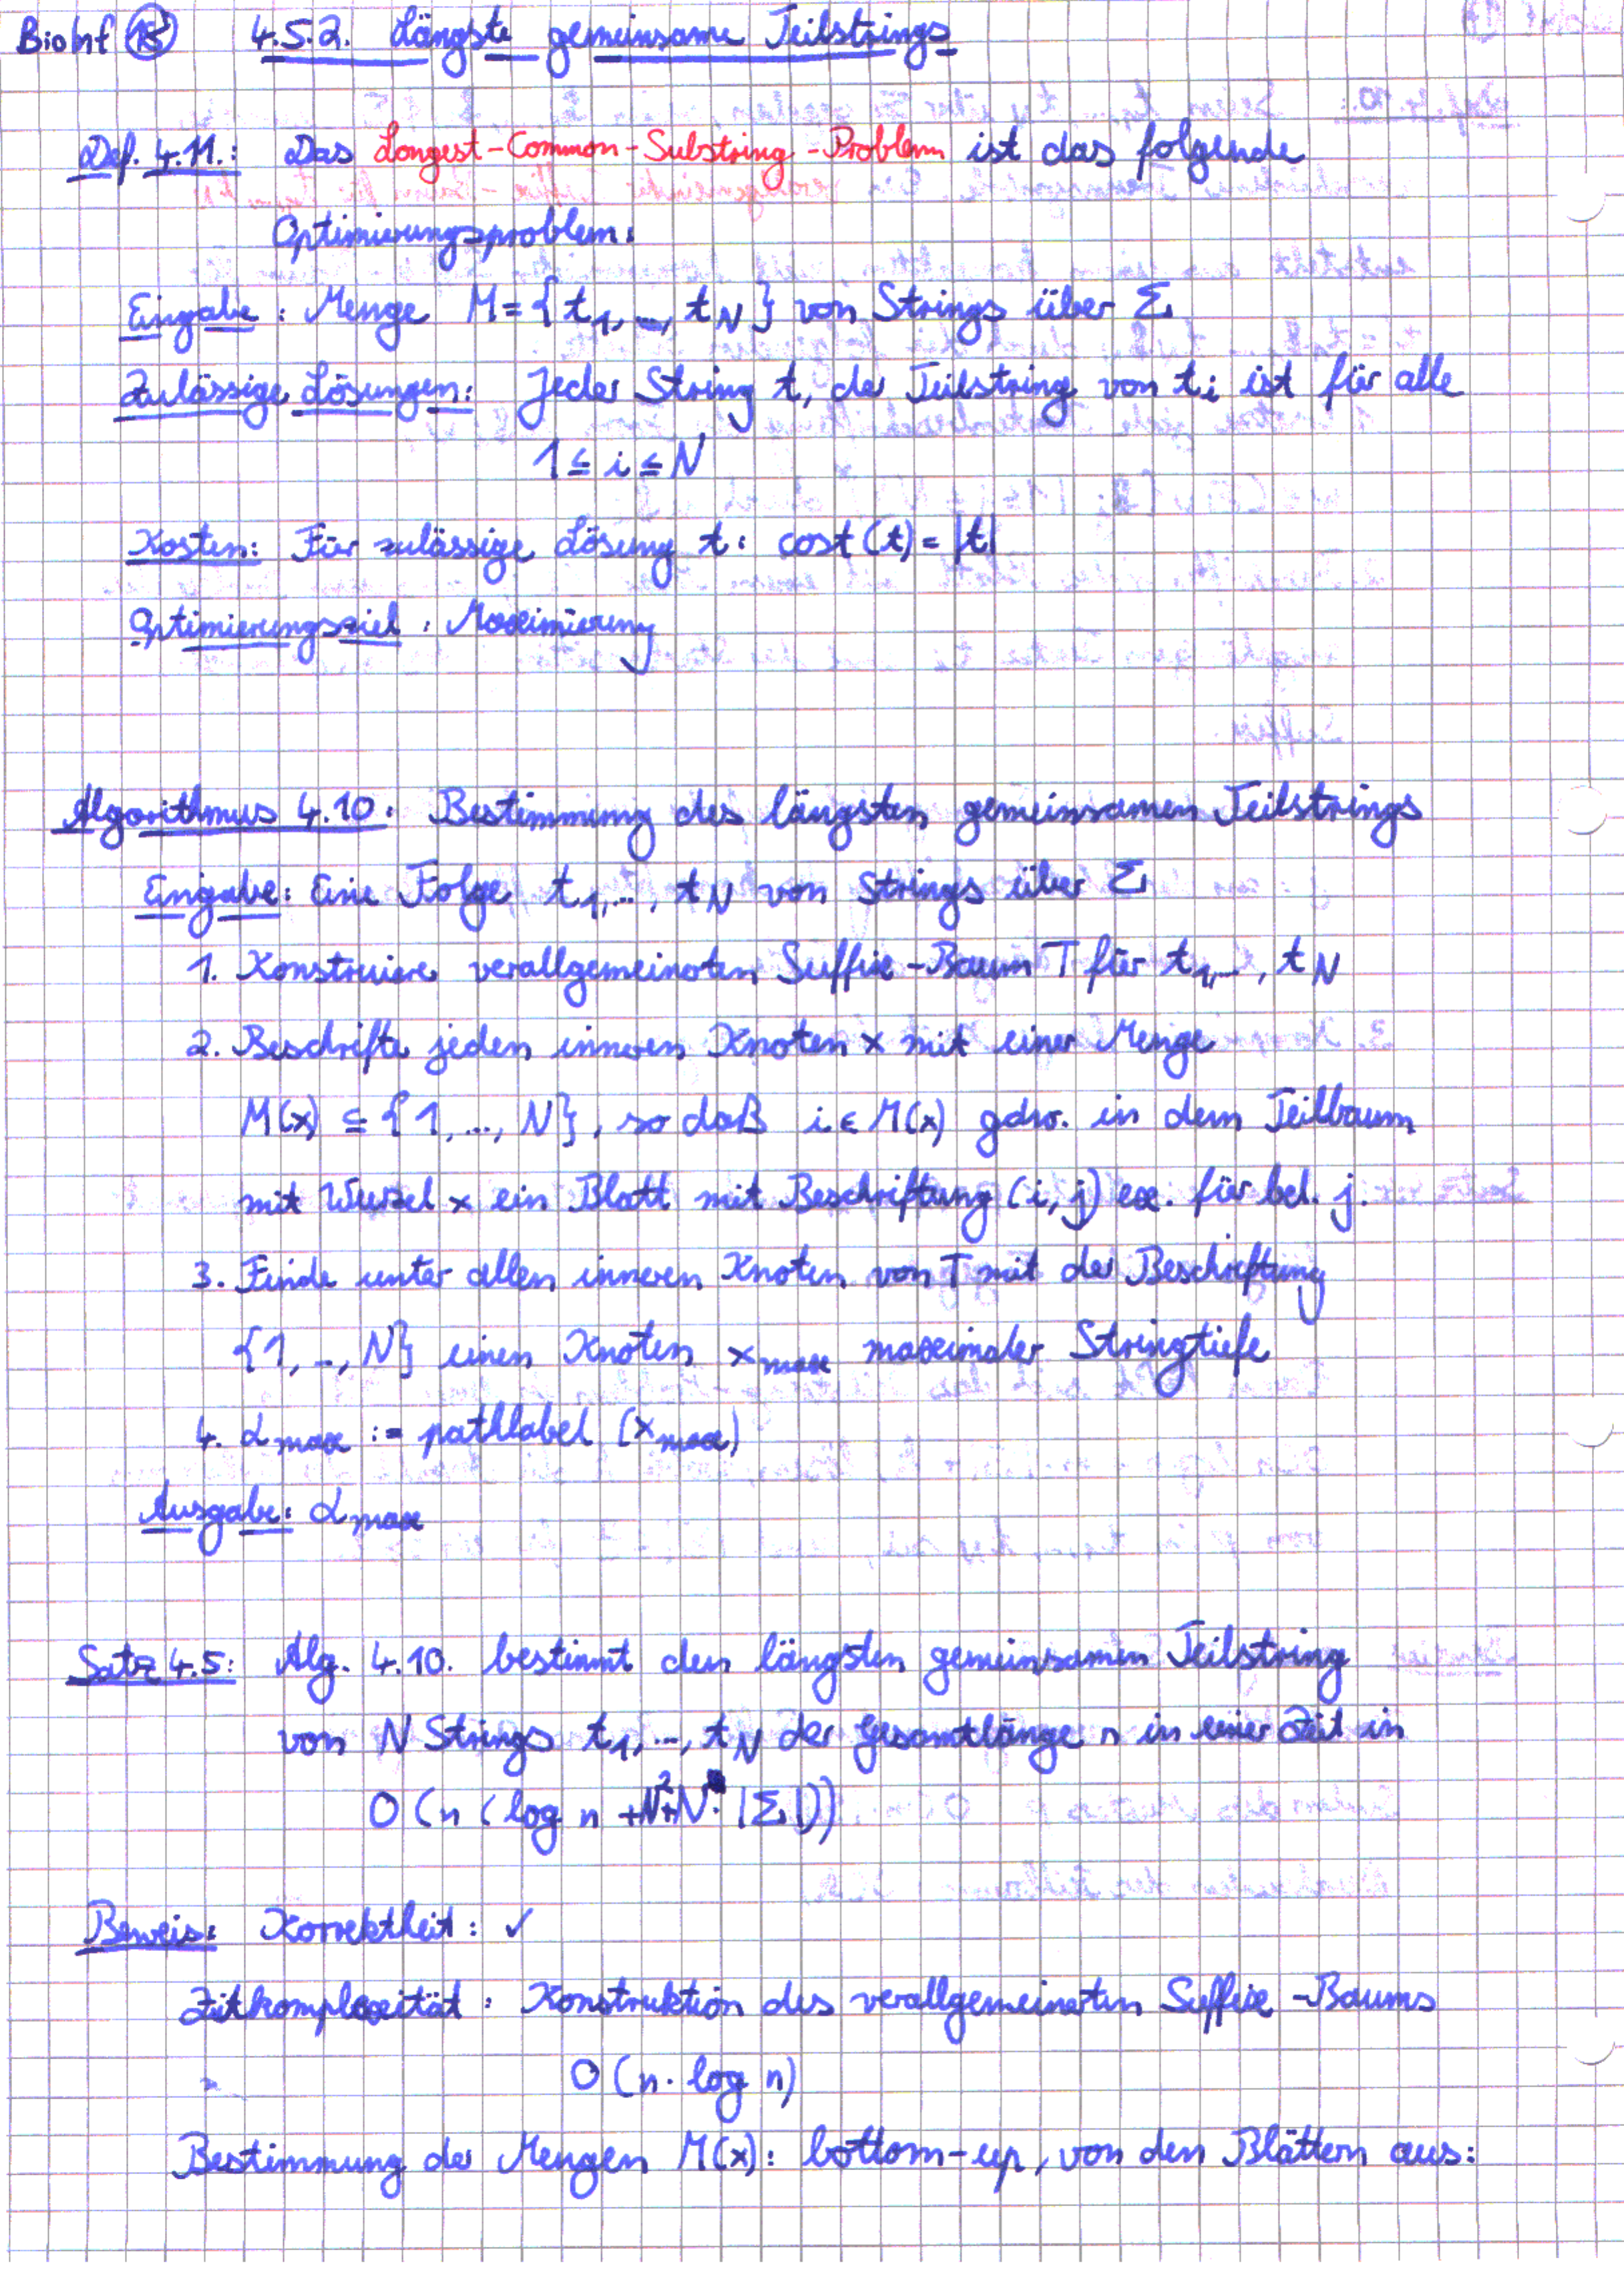 BioInf 18 4.5.2. Längste gemeinsame Teilstrings
Def. 4.11.: Das Longest-Common-Substring-Problem ist das folgende
Optimierungsproblem:
Eingabe: Menge M = {t₁, ..., t_N} von Strings über Σ
Zulässige Lösungen: Jeder String t, der Teilstring von tᵢ ist für alle
1 ≤ i ≤ N
Kosten: Für zulässige Lösung t: cost(t) = |t|
Optimierungsziel: Maximierung
Algorithmus 4.10: Bestimmung des längsten gemeinsamen Teilstrings
Eingabe: Eine Folge t₁, ..., t_N von Strings über Σ
1. Konstruiere verallgemeinerten Suffix-Baum T für t₁, ..., t_N
2. Beschrifte jeden inneren Knoten x mit einer Menge
M(x) ⊆ {1, ..., N}, so daß i ∈ M(x) gdw. in dem Teilbaum
mit Wurzel x ein Blatt mit Beschriftung (i, j) ex. für bel. j.
3. Finde unter allen inneren Knoten von T mit der Beschriftung
{1, ..., N} einen Knoten x_max maximaler Stringtiefe
4. α_max := pathlabel (x_max)
Ausgabe: α_max
Satz 4.5: Alg. 4.10. bestimmt den längsten gemeinsamen Teilstring
von N Strings t₁, ..., t_N der Gesamtlänge n in einer Zeit in
O (n (log n + N² + N · |Σ|))
Beweis: Korrektheit: ✓
Zeitkomplexität: Konstruktion des verallgemeinerten Suffix-Baums
O (n · log n)
Bestimmung der Mengen M(x): bottom-up, von den Blättern aus: